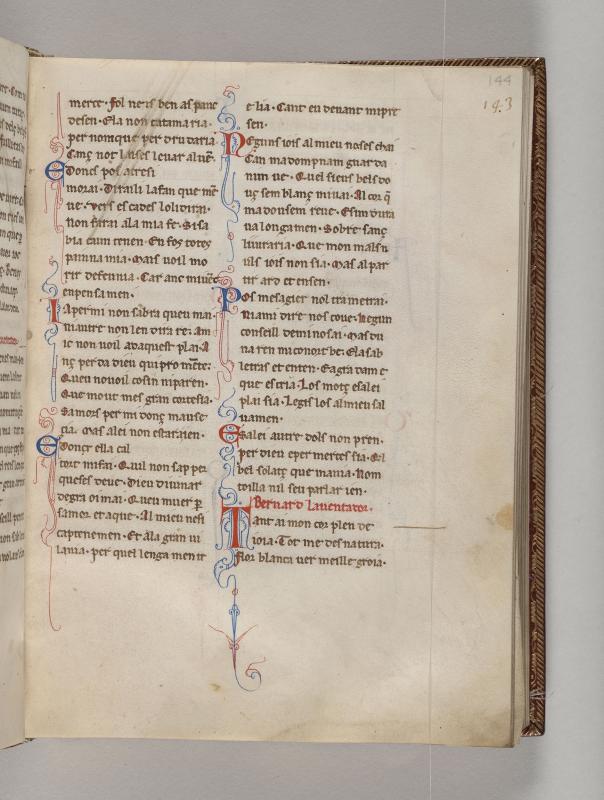 144
143
merce. fol ne is ben as panc
desen. Ela non catama ria.
per nom que per dru daria
samç not laises leuar al uẽ.
Doncs pos atresi
morai. Dirai li lafan que mẽ
ue. vers es cades lo li diran.
non farai ala mia fe. Si sa
bia cum tenen. En fos totes
pauna mia. Mais uoil mo
rir de fennia. Car anc
enpensa men.
Ia per mi non sabra queu man.
ni autre non len dira re. am
ic non uoil ad aquest plai. A
nç perda dieu qui pro mẽtec.
Queu nouoil cosin niparen.
Que mout mes gran cortesia.
Samors per mi donç mause
cia. Mas alei non estara ien.
Donçt ella cui
tort mi fan. Quil non sap per
queses deue. Dieu diuinar
degra oi mai. Queu muer p̱
samor. et aque. Al mieu nesi
captenemen. Et ala gran ui
lania. per quel lenga men tr
e lia. Cant eu denant mi pre
sen.
Neguns iois al mieu noses chai
Can ma dompnam guarda
nim ue. Quel sieus bels do
uç sem blanç miuai. Al cor q̃
ma dousem reue. E sim dura
ua longa men. Sobre sanç
liuraria. Que mon mal sn
uls iois non sia. Mas al par
tir ard et ensen.
Pos mesagier nol tra metrai.
Ni ami dire nos coue. Negun
conseill de mi no sai. Mas du
na ren mi conort be. Ela sab
letras et enten. E agra dam e
que escria. Los motç e salei
plai sia. Legis los al mieu sal
uamen.
E salei autre dols non pren.
per dieu e per merces sia. El
bel solatç que mauia. Nom
toilla nil seu parlar ien.
Bernard Lauentator.
Tant ai mon cor plen de
ioia. Tot me des natura.
flor blanca uer meille groia.